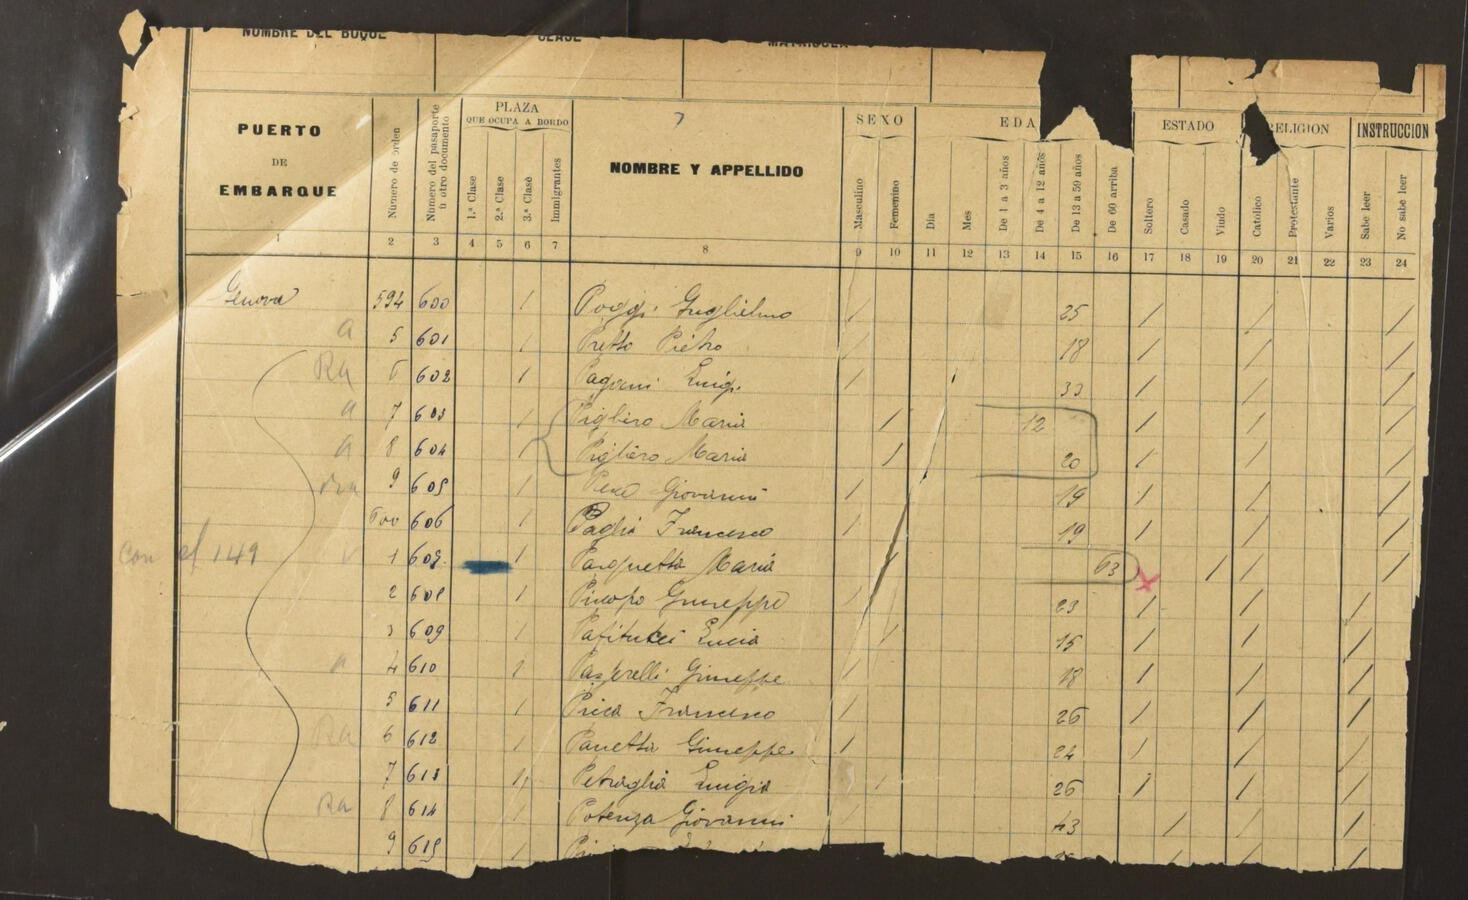 NOMBRE DEL BUQUE CLASE MATRICULA
PUERTO DE EMBARQUE
Número de orden
Número del pasaporte ú otro documento
PLAZA QUE OCUPA A BORDO
1.ª Clase
2.ª Clase
3.ª Clase
Immigrantes
NOMBRE Y APPELLIDO
SEXO
Masculino
Femenino
EDA
Dia
Mes
De 1 a 3 años
De 4 a 12 años
De 13 a 59 años
De 60 arriba
ESTADO
Soltero
Casado
Viudo
RELIGION
Catolico
Protestante
Varios
INSTRUCCION
Sabe leer
No sabe leer
1 2 3 4 5 6 7 8 9 10 11 12 13 14 15 16 17 18 19 20 21 22 23 24
Genova 594 600 / Poggi Guglielmo / 25 / / /
a 5 601 / Pietro / 18 / / /
Ra 6 602 / Pagani Luigi / 33 / / /
a 7 603 / Pigliero Maria / 12 / / /
a 8 604 / Pigliero Maria / 20 / / /
9 605 / Giovanni / 19 / / /
600 606 / Paglia Francesco / 19 / / /
Con el 149 1 607 / Pasquetta Maria / 63 x / / /
2 608 / Giuseppe / 23 / / /
3 609 / Lucia / 15 / / /
a 4 610 / Giuseppe / 18 / / /
5 611 / Francesco / 26 / / /
Ra 6 612 / Panetta Giuseppe / 24 / / /
7 613 / Petraglia Luigia / 26 / / /
Ra 8 614 / Potenza Giovanni / 43 / / /
9 615 /